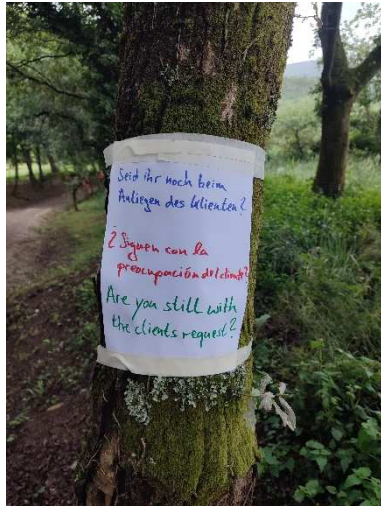 Seid ihr noch beim
Anliegen des Klienten?
¿Siguen con la
preocupación del cliente?
Are you still with
the clients request?